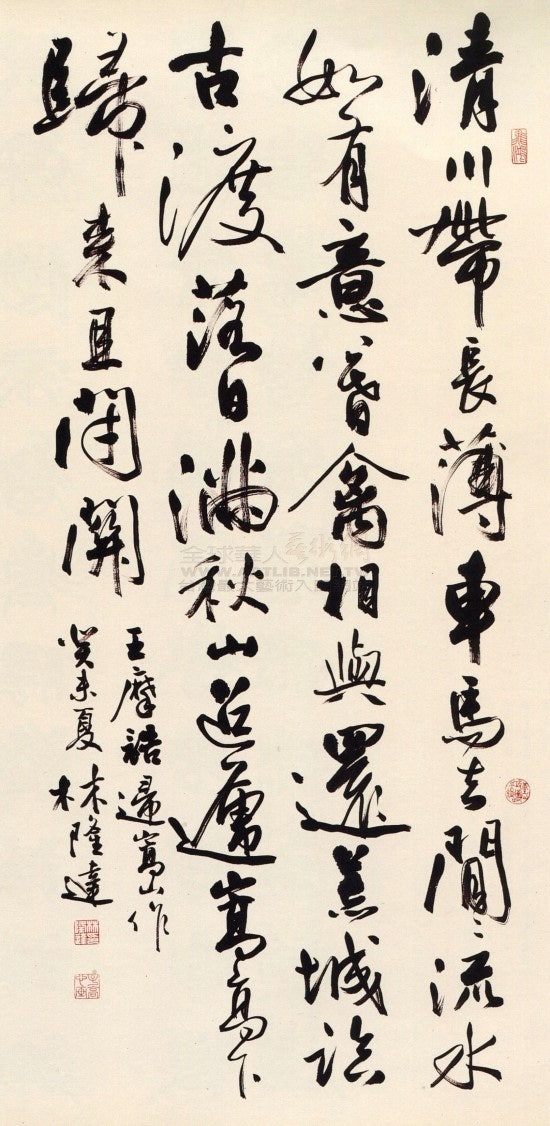 清川帶長薄車馬去閒〻流水
如有意暮禽相與還荒城臨
古渡落日滿秋山迢遞嵩高下
歸來且閉關
王摩詰歸嵩山作
癸未夏林隆達
全球華人藝術網
WWW.ARTLIB.NET.TW